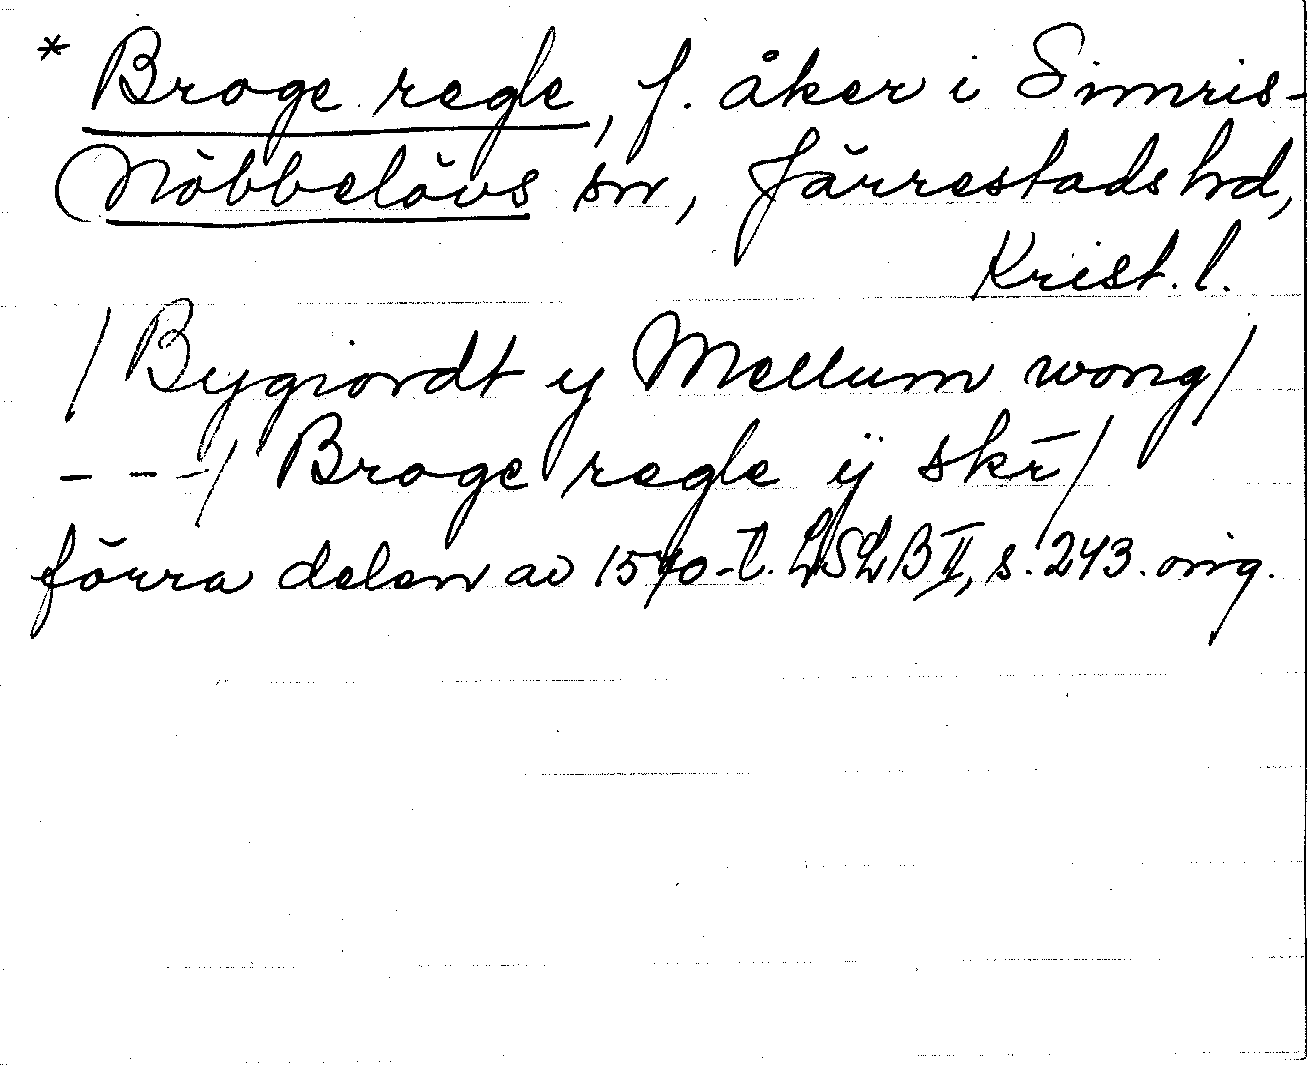 * Broge regle, f. åker i Simris-
Nöbbelövs sn, Järrestads hd,
Krist. l.
/ Bygiordt y Mellum wong /
- - -/ Broge regle ij skr̄ /
förra delen av 1570-t. LSLB II, s. 243. orig.